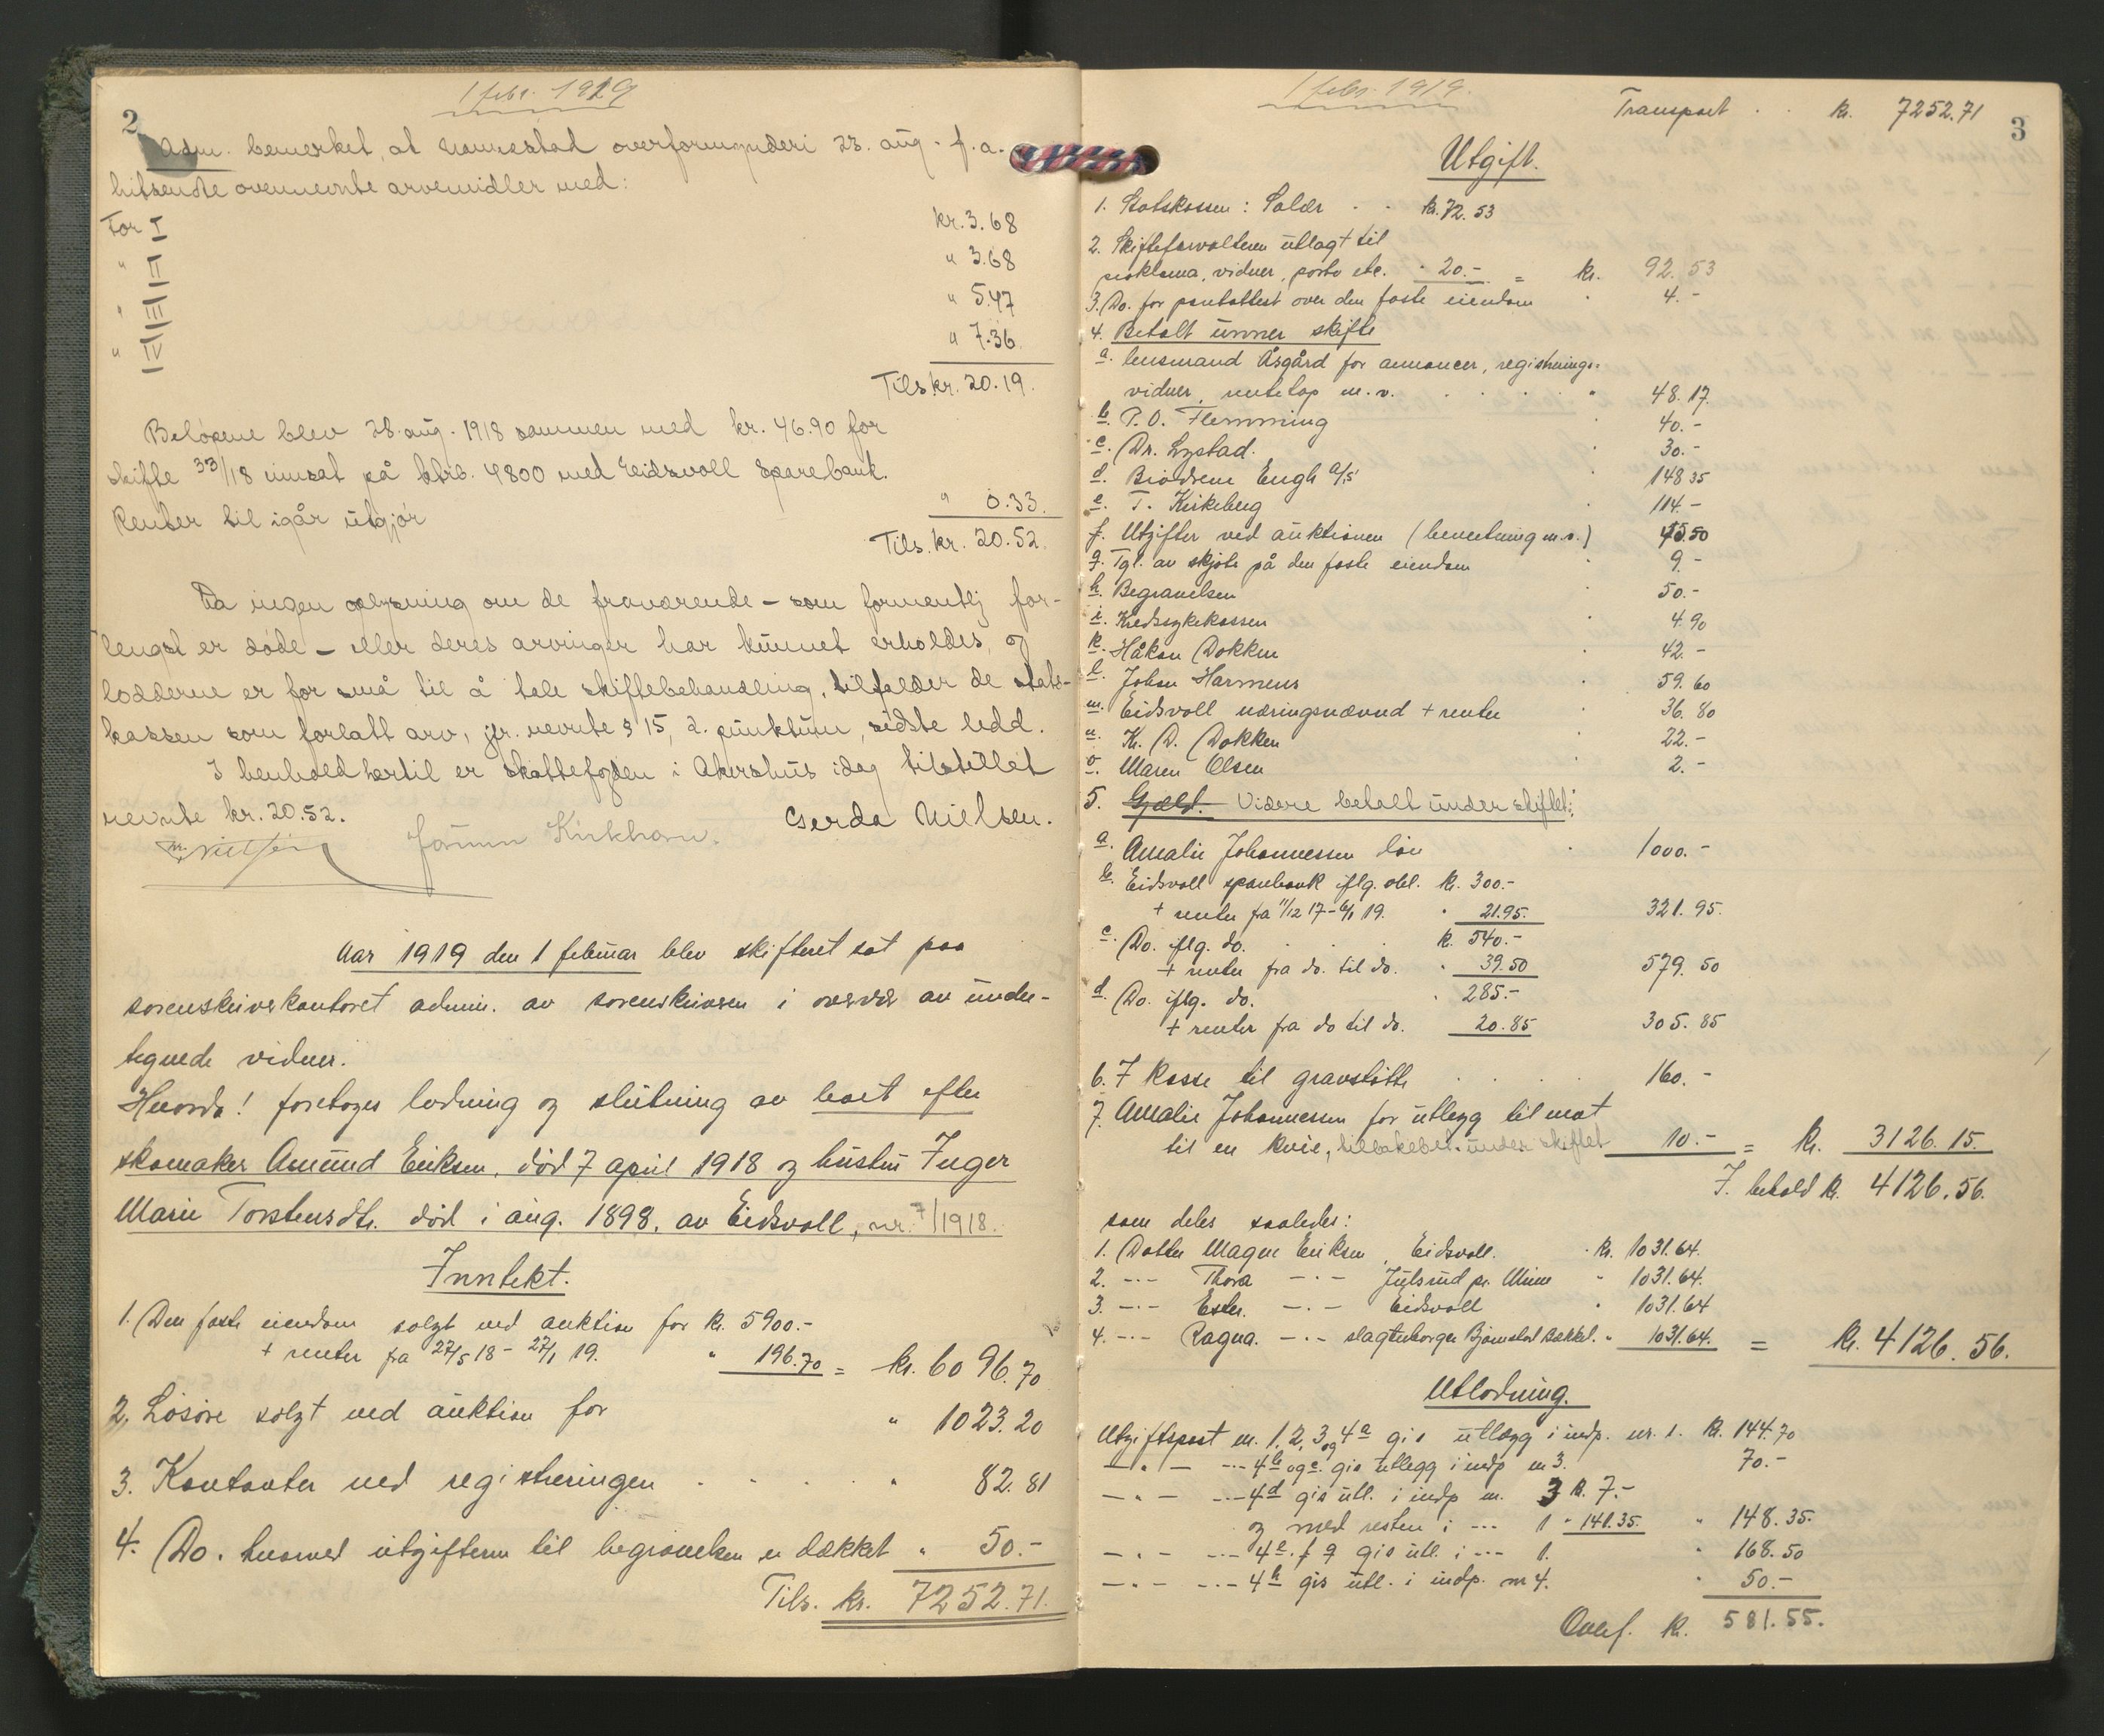 1 febr. 1919
2
Adm. bemerket, at Nannestad overformynderi 23. aug. f.a.
hitsendte ovennevnte arvemidler med:
For I kr. 3.68
" II " 3.68
" III " 5.47
" IV " 7.36
Tils. kr. 20.19.
Beløpene blev 28. aug. 1918 sammen med kr. 46.90 for
skifte 33/18 innsat på ktrb. 4800 med Eidsvoll Sparebank.
Renter til igår utgjør " 0.33.
Tils. kr. 20.52.
Da ingen oplysning om de fraværende – som formentlig for-
lengst er døde – eller deres arvinger har kunnet erholdes, og
lodderne er for små til å tale skiftebehandling, tilfalder de stats-
kassen som forlatt arv, jfr. nevnte § 15, 2. punktum, sidste ledd.
I henhold hertil er skattefogden i Akershus idag tilstillet
nevnte kr. 20.52.
Kirkhorn. Gerda Nielsen.
Aar 1919 den 1 februar blev skifteret sat paa
sorenskriverkontoret admin. av sorenskriveren i overvær av under-
tegnede vidner.
Hvorda! foretoges lodning og slutning av boet efter
skomaker Amund Eriksen, død 7 april 1918 og hustru Inger
Marie Torstensdtr. død i aug. 1898, av Eidsvoll, nr. 7/1918.
Inntekt.
1. Den faste eiendom solgt ved auktion for kr. 5900.-
+ renter fra 27/5 18 - 27/1 19. " 196.70 = kr. 6096.70
2. Løsøre solgt ved auktion for " 1023.20
3. Kontanter ved registreringen . . . " 82.81
4. Do. hvorved utgifterne til begravelsen er dækket " 50.-
Tils. kr. 7252.71.
1 febr. 1919.
3
Transport . . kr. 7252.71
Utgift.
1. Statskassen: Salær . . kr. 72.53
2. Skifteforvalteren utlagt til
proklama, vidner, porto etc. " 20.- = kr. 92.53
3. Do. for pantattest over den faste eiendom " 4.-
4. Betalt unner skifte
a. lensmand Åsgård for annoncer, registrerings-
vidner, rentetap m.v. . . . . " 48.17.
b. P.O. Flemming " 40.-
c. Dr. Lystad. " 30.-
d. Brødrene Engh a/s " 148.35
e. T. Kirkeberg " 114.-
f. Utgifter ved auktionen (bevertning m.v.) 45.50
g. Tgl. av skjøte på den faste eiendom " 9.-
h. Begravelsen " 50.-
i. Kredssykekassen " 4.90
k. Håkon Dokken " 42.-
l. Johan Harmens " 59.60
m. Eidsvoll næringsnævnd + renter " 36.80
n. K. D. Dokken " 22.-
o. Maren Olsen " 2.-
5. Gjeld. Videre betalt under skiftet:
a. Amalie Johannessen lån " 1000.-
b. Eidsvoll sparebank iflg. obl. kr. 300.-
+ renter fra 11/12 17 - 6/1 19. " 21.95. 321.95.
c. Do. iflg. do. . . . kr. 540.-
+ renter fra do. til do. " 39.50 579.50
d. Do. iflg. do. " 285.-
+ renter fra do til do. 20.85 305.85
6. I kasse til gravstøtte . . . . 160.-
7. Amalie Johannessen for utlegg til mat
til en kvie, tilbakebet. under skiftet 10.- = kr. 3126.15.
I behold kr. 4126.56.
som deles saaledes:
1. Datter Magne Eriksen, Eidsvoll. . kr. 1031.64.
2. -·- Thora -·- Julsrud pr. Minne " 1031.64.
3. -·- Ester. -·- Eidsvoll " 1031.64
4. -·- Ragna. -·- slagterborger Bjørnstad Bækkel. " 1031.64. = kr. 4126.56.
Utlodning.
Utgiftspost nr. 1, 2, 3, og 4a gis utlægg i indp. nr. 1. kr. 144.70
-"- -·- 4b og c. gis utlegg i indp nr 3. 70.-
-"- -·- 4d gis utl. i indp nr. 3 kr. 7.-
og med resten i -·- 1 " 141.35. " 148.35.
-"- -·- 4e. f g gis utl. i -·- 1. " 168.50
-"- -·- 4h gis utl. i indp. nr 4. " 50.-
Overf. kr. 581.55.